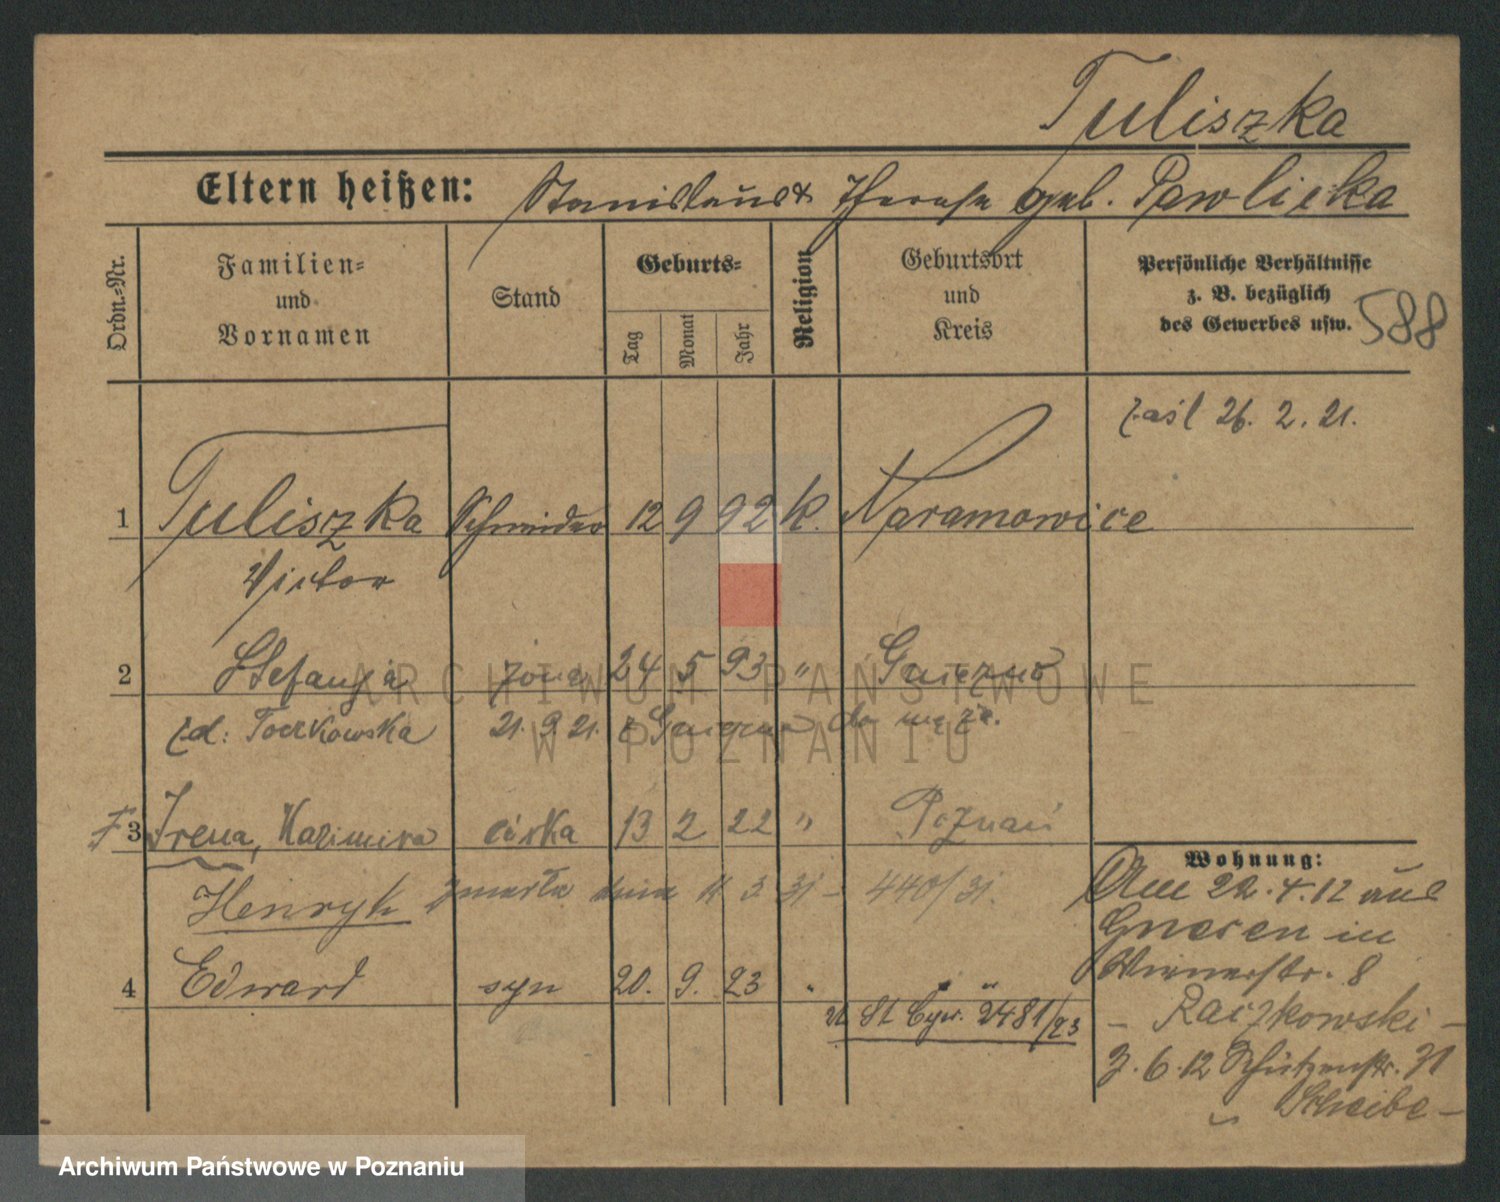 Tuliszka
Eltern heißen: Stanislaus & Therese geb. Pawlicka
Ordn.-Nr.
Familien-
und
Vornamen
Stand
Geburts-
Tag
Monat
Jahr
Religion
Geburtsort
und
Kreis
Persönliche Verhältnisse
z. B. bezüglich
des Gewerbes usw.
588
zaśl 26. 2. 21.
1 Tuliszka Schneider 12 9 92 k. Naramowice
Victor
2 Stefanja żona 24 5 93 " Gniezno
zd: Toczkowska 21. 9. 21. z Gniezna do męża.
3 Irena, Kazimira córka 13 2 22 " Poznań
Henryk zmarła dnia 11 3. 31 - 440/31.
4 Edward syn 20. 9. 23 " " "
St Cyw. 2481/23
Wohnung:
Am 22. 4. 12 aus
Gnesen in
Wienerstr. 8
- Raczkowski -
3. 6. 12 Schützenstr. 31
Scheibe -
ARCHIWUM PAŃSTWOWE
W POZNANIU
Archiwum Państwowe w Poznaniu